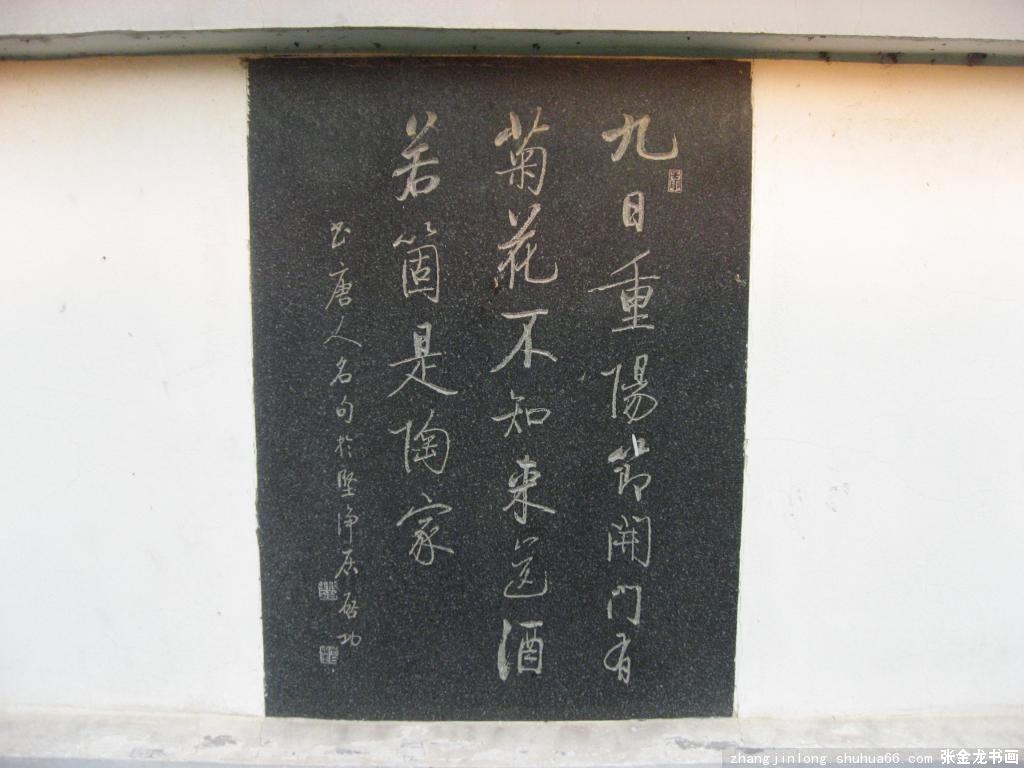 九日重陽節開門有
菊花不知來送酒
若箇是陶家
書唐人名句於堅淨居啟功
zhangjinlong.shuhua66.com 张金龙书画